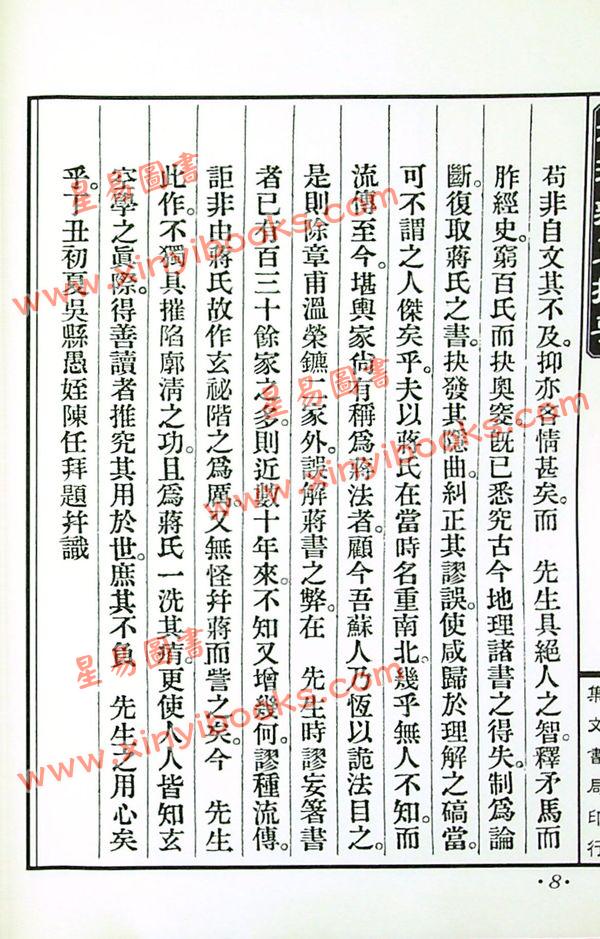 苟非自文其不及。抑亦吝情甚矣。而　先生具絕人之智。釋矛馬而
胙經史。窮百氏而抉奧窔。旣已悉究古今地理諸書之得失。制爲論
斷。復取蔣氏之書。抉發其隱曲。糾正其謬誤。使咸歸於理解之碻當。
可不謂之人傑矣乎。夫以蔣氏在當時名重南北。幾乎無人不知。而
流傳至今。堪輿家尙有稱爲蔣法者。顧今吾蘇人乃恆以詭法目之。
是則除章甫溫榮鑣二家外。誤解蔣書之弊。在　先生時謬妄箸書
者已有百三十餘家之多。則近數十年來。不知又增幾何。謬種流傳。
詎非由蔣氏故作玄祕階之爲厲。又無怪幷蔣而訾之矣。今　先生
此作。不獨具摧陷廓淸之功。且爲蔣氏一洗其痏。更使人人皆知玄
空學之眞際。得善讀者推究其用於世。庶其不負　先生之用心矣
乎。丁丑初夏吳縣愚姪陳任拜題幷識
集文書局印行
·8·
星易圖書
www.xinyibooks.com
星易圖書
www.xinyibooks.com
星易圖書
www.xinyibooks.com